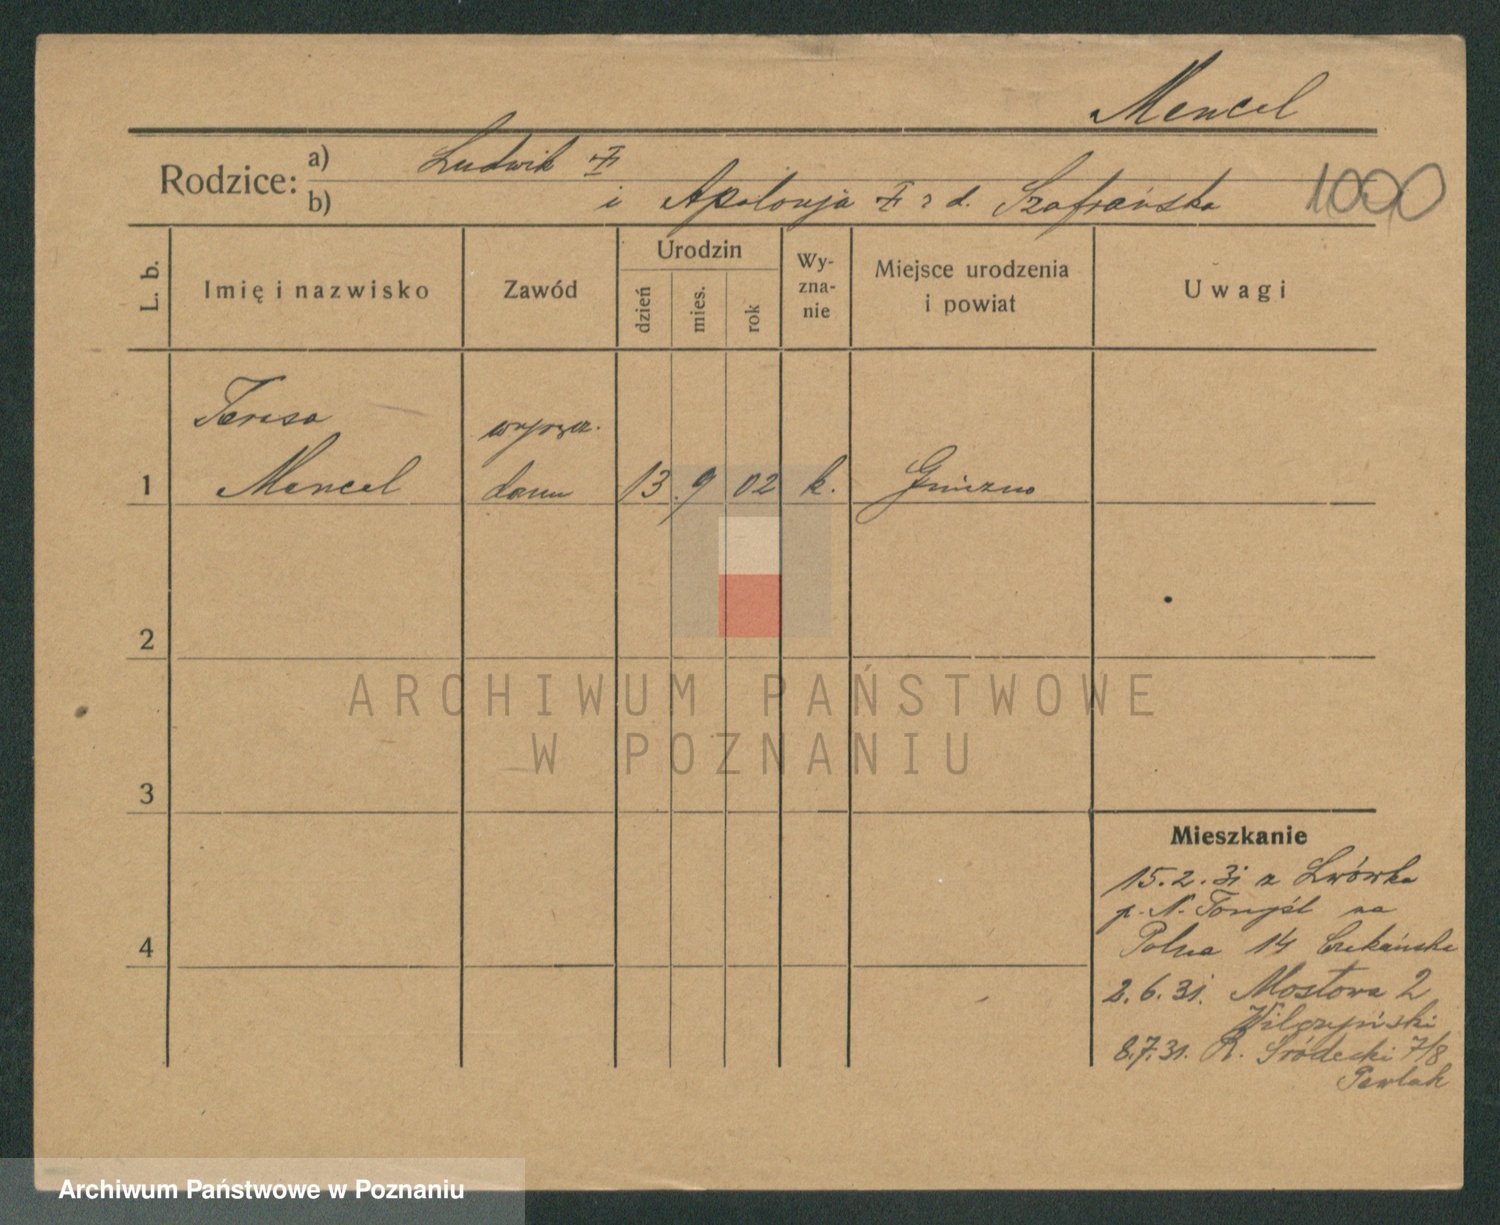 Mencel
Rodzice: a) Ludwik
b) i Apolonja z d. Szafrańska
1000
L. b.
Imię i nazwisko
Zawód
Urodzin
dzień
mies.
rok
Wy-
zna-
nie
Miejsce urodzenia
i powiat
Uwagi
Teresa
wyprzą.
1 Mencel domu 13. 9 02 k. Gniezno
2
3
4
ARCHIWUM PAŃSTWOWE
W POZNANIU
Mieszkanie
15.2.31 z Lwówka
p. N. Tomyśl na
Polna 14
2.6.31. Mostowa 2
Wilczyński
8.7.31. R. Śródecki 7/8
Pawlak
Archiwum Państwowe w Poznaniu